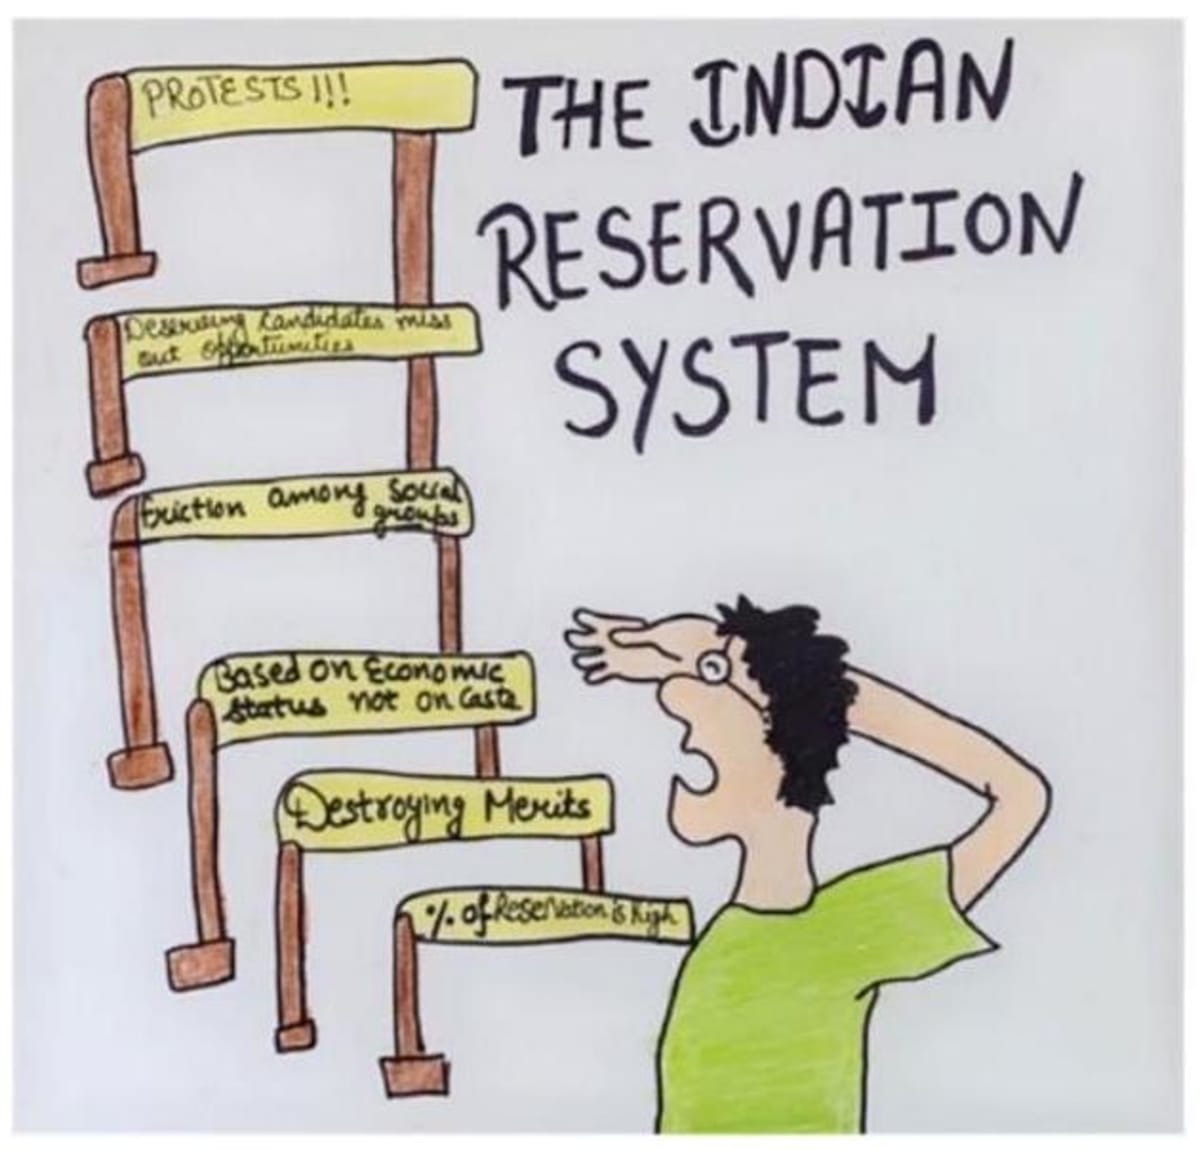 THE INDIAN
RESERVATION
SYSTEM
PROTESTS !!!
Deserving Candidates miss
out opportunities
Friction among Social
groups
Based on Economic
Status not on Caste
Destroying Merits
% of Reservation is high